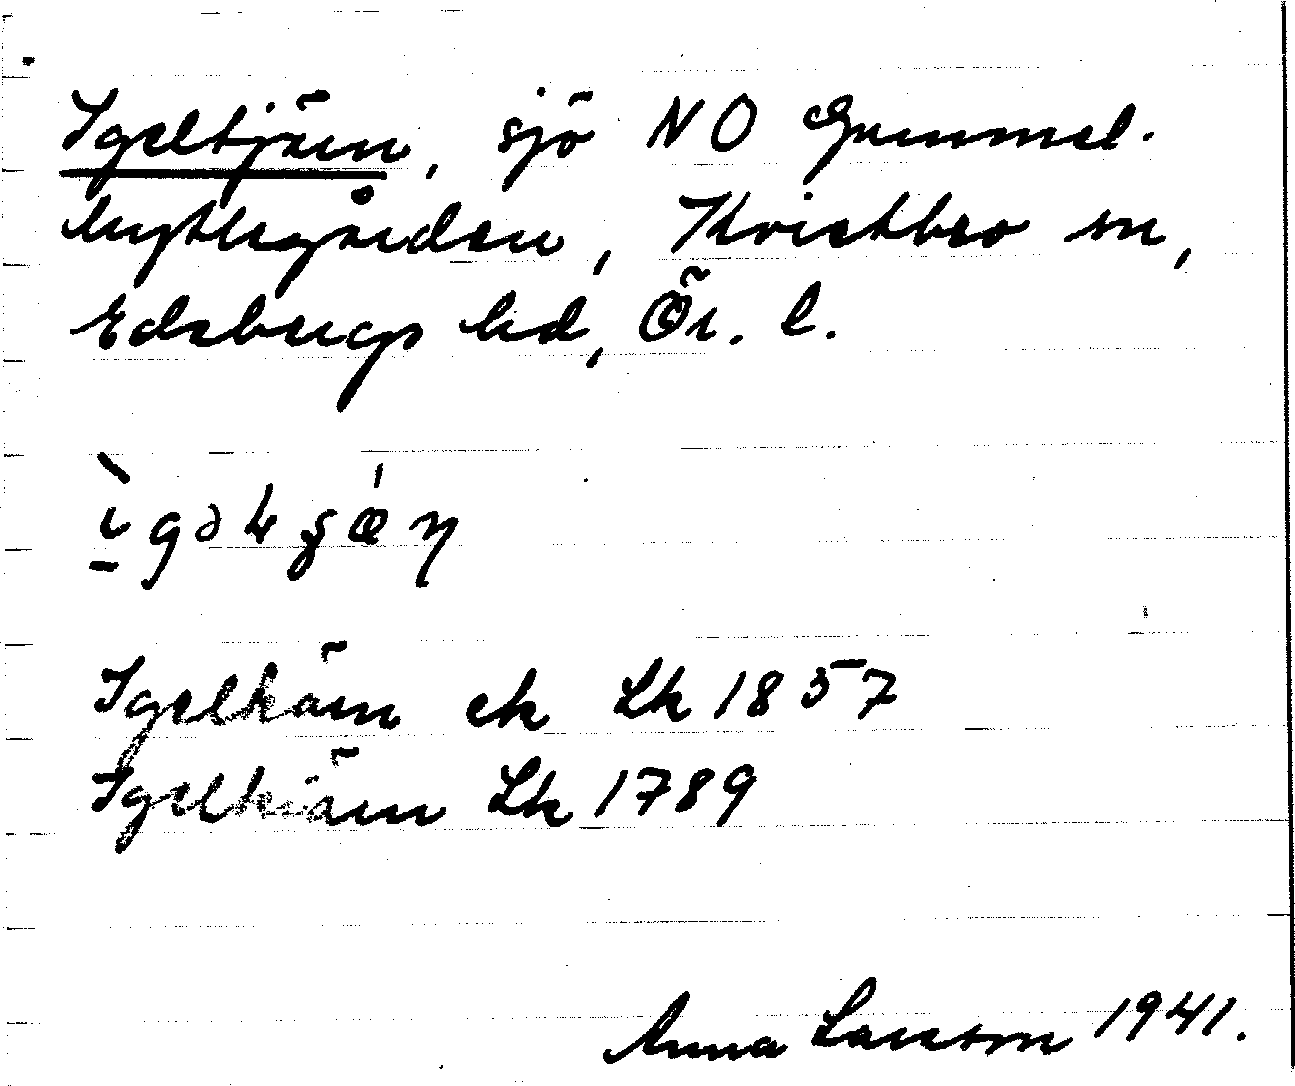 Igeltjärn, sjö NO Gammel-
hyttegården, Kvistbro sn,
Edsbergs hd, Ör. l.
Igelkärn ek Lk 1857
Igelkiärn Lk 1789
Anna Larsson 1941.